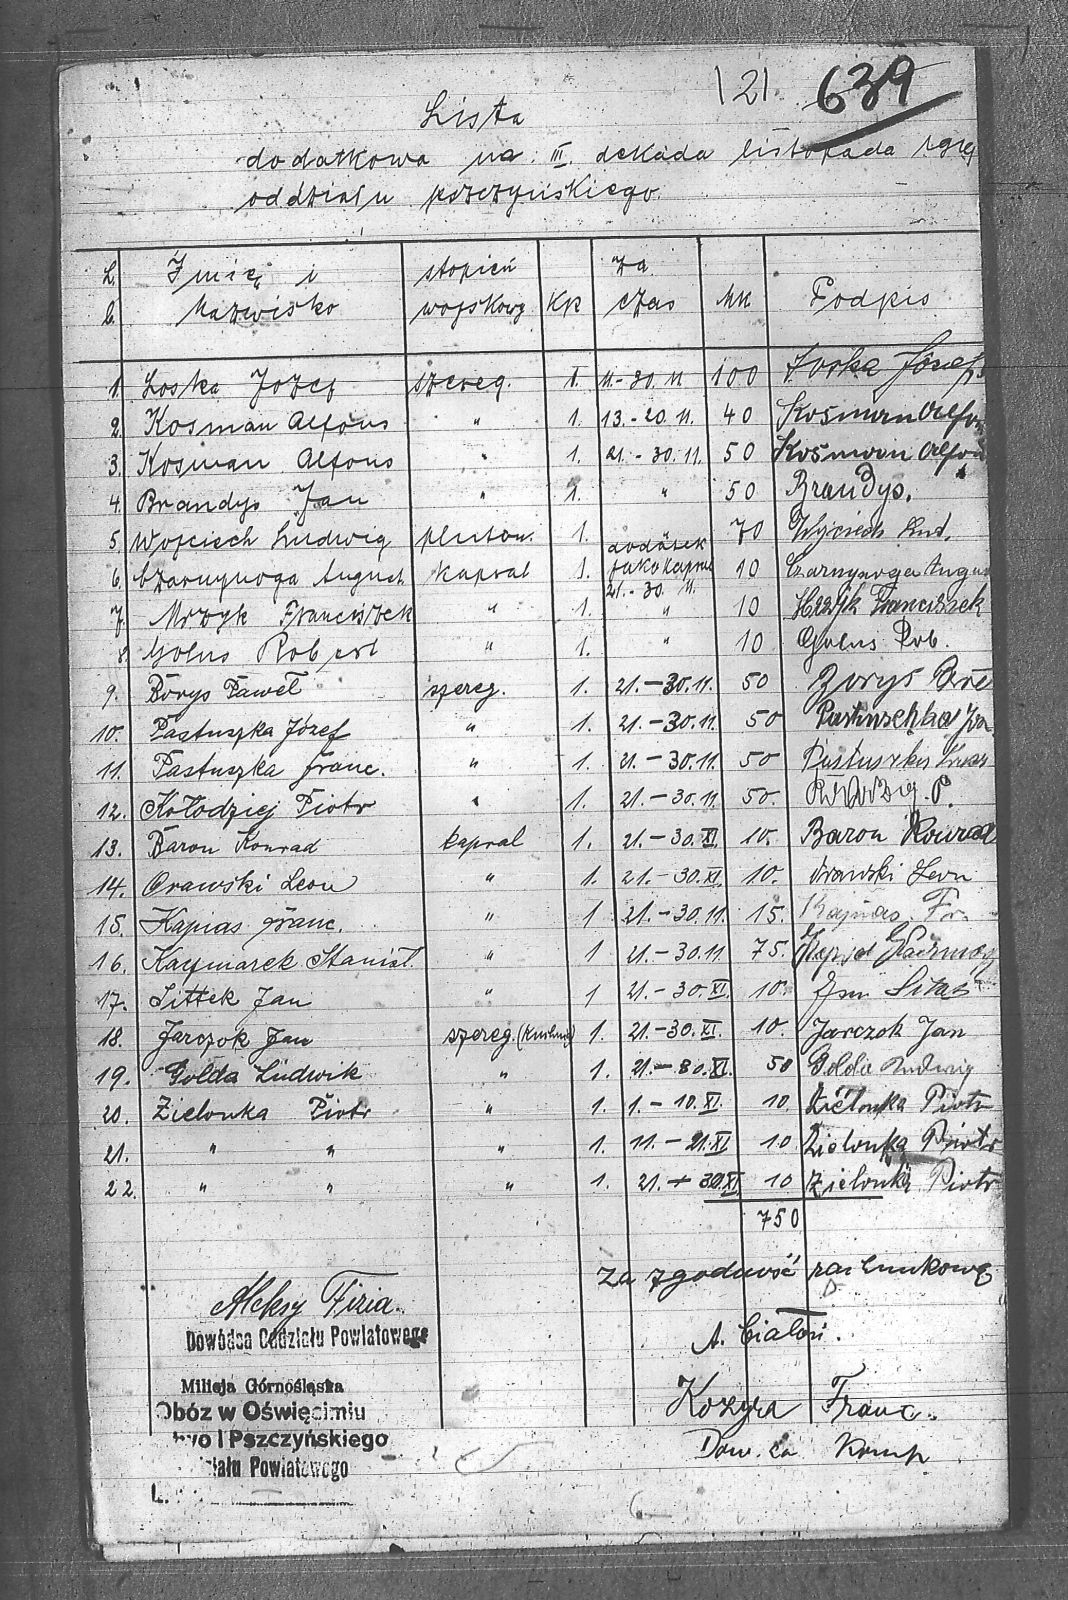 121. 639
Lista
dodatkowa na III dekada listopada 1919
oddziału pszczyńskiego.
L. Imię i stopień za
b. Nazwisko wojskowy Kp czas Mk Podpis
1. Loska Jozef szereg. 1. 11.-30.11 100 Loska Józef
2. Kosman Alfons " 1. 13.-20.11. 40 Kosman Alfons
3. Kosman Alfons " 1. 21.-30.11. 50 Kosman Alfons
4. Brandys Jan " 1. " 50 Brandys.
5 Wojciech Ludwig pluton. 1. 70 Wojciech Lud.
dodatek
6. Czarnynoga August. kapral 1. jako kapral 10 Czarnynoga Augus
21.-30.11.
7. Mrzyk Franciszek " 1. " 10 Franciszek
8. Golus Robert " 1. " 10 Golus Rob.
9. Borys Paweł szereg. 1. 21.-30.11. 50
10. Pastuszka Józef " 1. 21.-30.11. 50 Pastuschka
11. Pastuszka Franc. " 1. 21.-30.11. 50 Pastuszka
12. Kołodziej Piotr " 1. 21.-30.11. 50. P.
13. Baron Konrad kapral 1. 21.-30.XI. 10. Baron Konrad
14. Orawski Leon " 1. 21.-30.XI. 10. Orawski Leon
15. Kapias Franc. " 1 21.-30.11. 15. Kapias Fr.
16. Kaczmarek Stanisł. " 1 21.-30.11. 75.
17. Sittek Jan " 1 21.-30.XI. 10. Jan
18. Jarczok Jan szereg. (kuchnia) 1. 21.-30.XI. 10. Jarczok Jan
19. Golda Ludwik " 1. 21.-30.XI. 50 Golda Ludwig
20. Zielonka Piotr " 1. 1.-10.XI. 10. Zielonka Piotr
21. " " " 1. 11.-21.XI 10 Zielonka Piotr
22. " " " 1. 21.-30.XI. 10 Zielonka Piotr
750
Za zgodność rachunkową
Aleksy Fizia.
Dowódca Oddziału Powiatowego
A.
Milicja Górnośląska
Kozyra Franc.
Obóz w Oświęcimiu
Dow. za Komp
I Pszczyńskiego
Powiatowego
L.